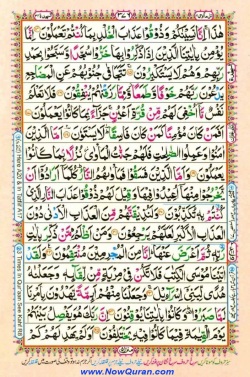 هٰذَا اِنَّا نَسِيْنٰكُمْ وَذُوْقُوْا عَذَابَ الْخُلْدِ بِمَا كُنْتُمْ تَعْمَلُوْنَ اِنَّمَا
يُؤْمِنُ بِاٰيٰتِنَا الَّذِيْنَ اِذَا ذُكِّرُوْا بِهَا خَرُّوْا سُجَّدًا وَّسَبَّحُوْا بِحَمْدِ
رَبِّهِمْ وَهُمْ لَا يَسْتَكْبِرُوْنَ تَتَجَافٰى جُنُوْبُهُمْ عَنِ الْمَضَاجِعِ
يَدْعُوْنَ رَبَّهُمْ خَوْفًا وَّطَمَعًا وَّمِمَّا رَزَقْنٰهُمْ يُنْفِقُوْنَ فَلَا تَعْلَمُ
نَفْسٌ مَّاۤ اُخْفِيَ لَهُمْ مِّنْ قُرَّةِ اَعْيُنٍ جَزَآءً بِمَا كَانُوْا يَعْمَلُوْنَ اَفَمَنْ
كَانَ مُؤْمِنًا كَمَنْ كَانَ فَاسِقًا لَا يَسْتَوٗنَ اَمَّا الَّذِيْنَ
اٰمَنُوْا وَعَمِلُوا الصّٰلِحٰتِ فَلَهُمْ جَنّٰتُ الْمَأْوٰى نُزُلًا بِمَا كَانُوْا
يَعْمَلُوْنَ وَاَمَّا الَّذِيْنَ فَسَقُوْا فَمَأْوٰىهُمُ النَّارُ كُلَّمَاۤ اَرَادُوْۤا اَنْ
يَّخْرُجُوْا مِنْهَاۤ اُعِيْدُوْا فِيْهَا وَقِيْلَ لَهُمْ ذُوْقُوْا عَذَابَ النَّارِ الَّذِيْ
كُنْتُمْ بِهٖ تُكَذِّبُوْنَ وَلَنُذِيْقَنَّهُمْ مِّنَ الْعَذَابِ الْاَدْنٰى دُوْنَ
الْعَذَابِ الْاَكْبَرِ لَعَلَّهُمْ يَرْجِعُوْنَ وَمَنْ اَظْلَمُ مِمَّنْ ذُكِّرَ بِاٰيٰتِ
رَبِّهٖ ثُمَّ اَعْرَضَ عَنْهَا اِنَّا مِنَ الْمُجْرِمِيْنَ مُنْتَقِمُوْنَ وَلَقَدْ
اٰتَيْنَا مُوْسَى الْكِتٰبَ فَلَا تَكُنْ فِيْ مِرْيَةٍ مِّنْ لِّقَآئِهٖ وَجَعَلْنٰهُ
هُدًى لِّبَنِيْۤ اِسْرَآءِيْلَ وَجَعَلْنَا مِنْهُمْ اَئِمَّةً يَّهْدُوْنَ بِاَمْرِنَا
لَمَّا صَبَرُوْا وَكَانُوْا بِاٰيٰتِنَا يُوْقِنُوْنَ اِنَّ رَبَّكَ هُوَ يَفْصِلُ بَيْنَهُمْ
يَوْمَ الْقِيٰمَةِ فِيْمَا كَانُوْا فِيْهِ يَخْتَلِفُوْنَ اَوَلَمْ يَهْدِ لَهُمْ كَمْ
www.NowQuran.com